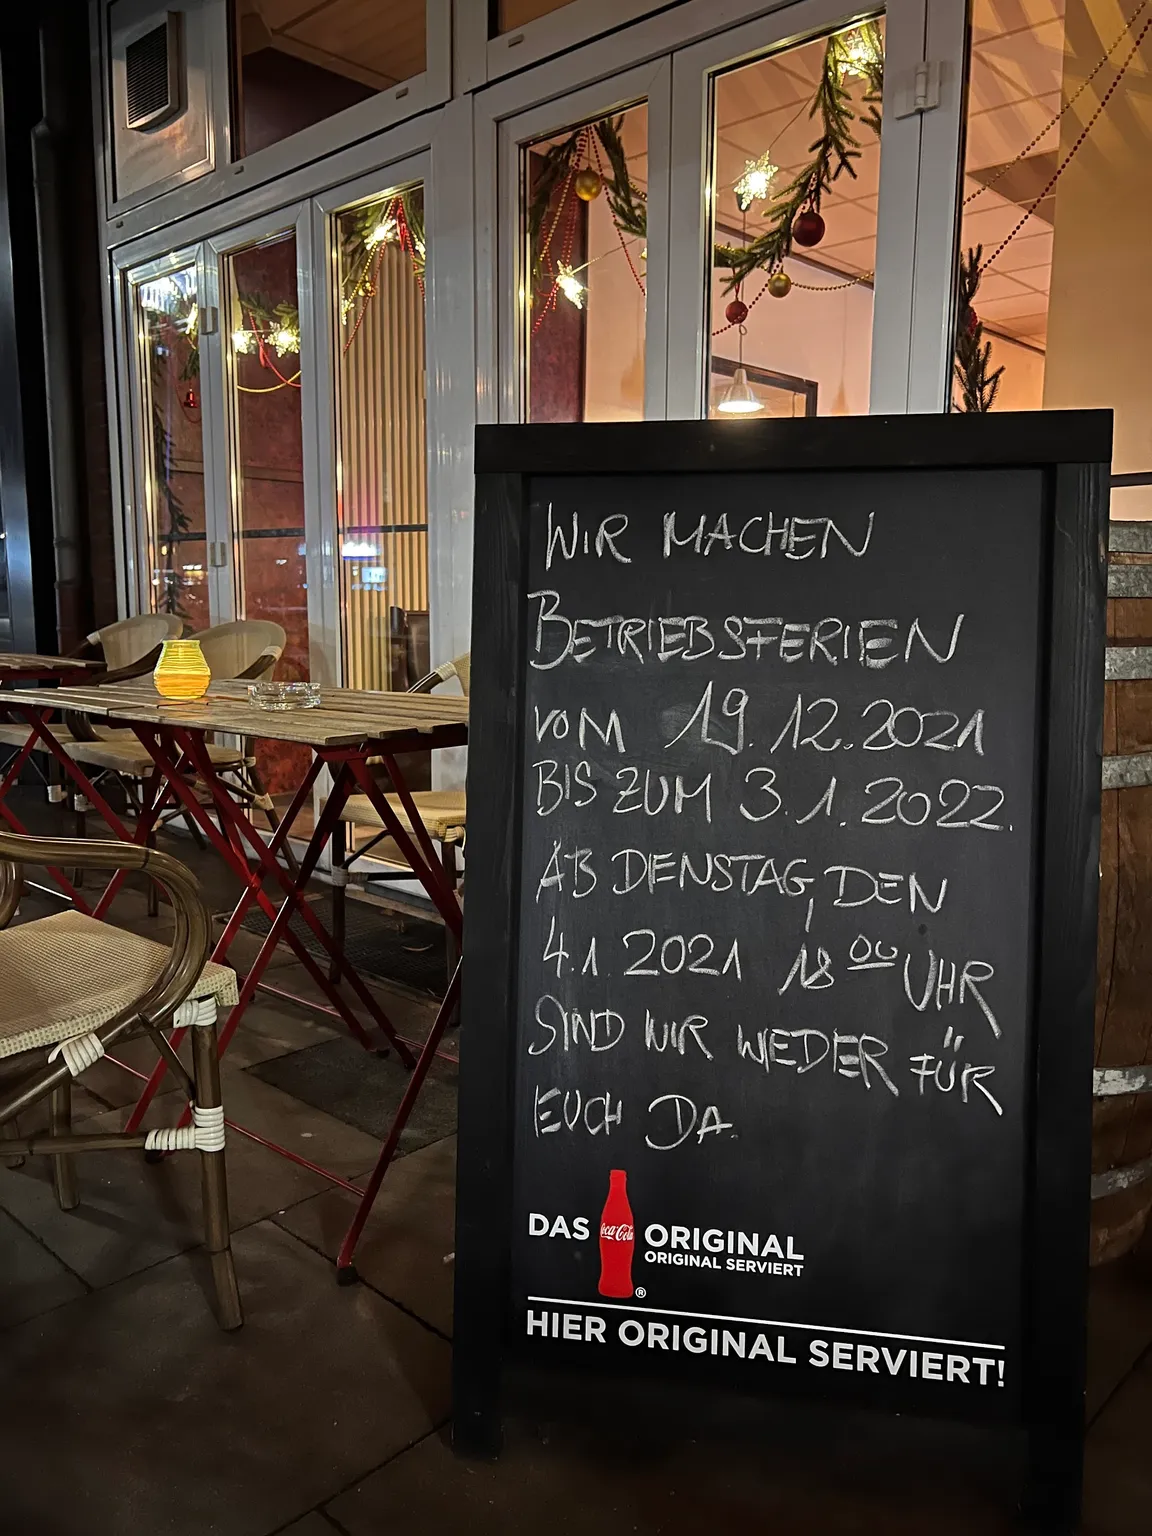 WIR MACHEN
BETRIEBSFERIEN
VOM 19.12.2021
BIS ZUM 3.1.2022.
AB DIENSTAG, DEN
4.1.2021 18⁰⁰ UHR
SIND WIR WIEDER FÜR
EUCH DA.
DAS Coca-Cola ORIGINAL
ORIGINAL SERVIERT
®
HIER ORIGINAL SERVIERT!